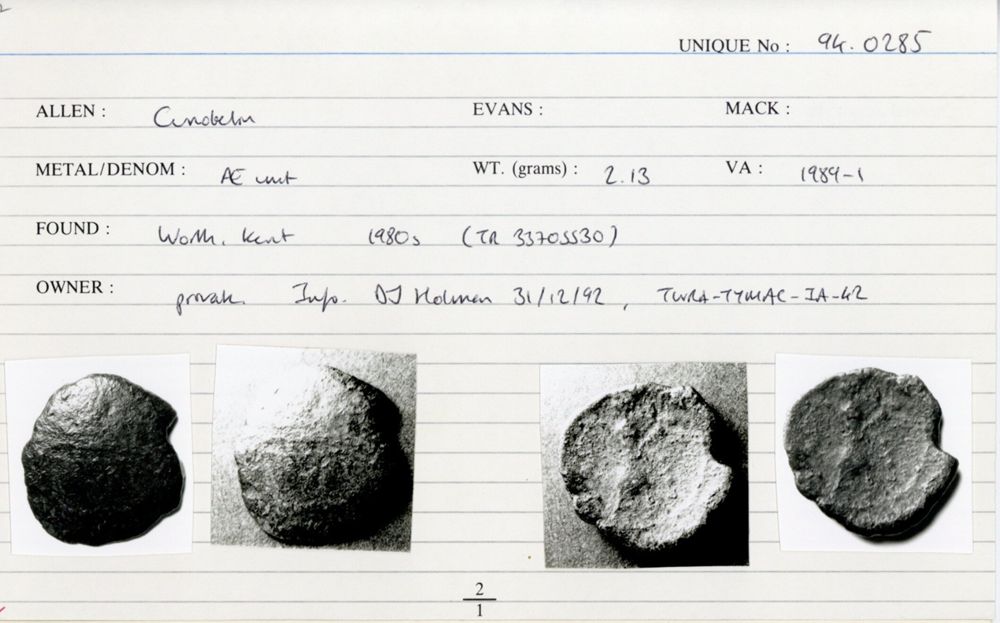 UNIQUE No : 94.0285
ALLEN : Cunobelin EVANS : MACK :
METAL/DENOM : Æ unit WT. (grams) : 2.13 VA : 1989-1
FOUND : Worth, Kent 1980s (TR 33705530)
OWNER : private. Info. DJ Holman 31/12/92, TWRA-TYMAC-IA-42
2
1